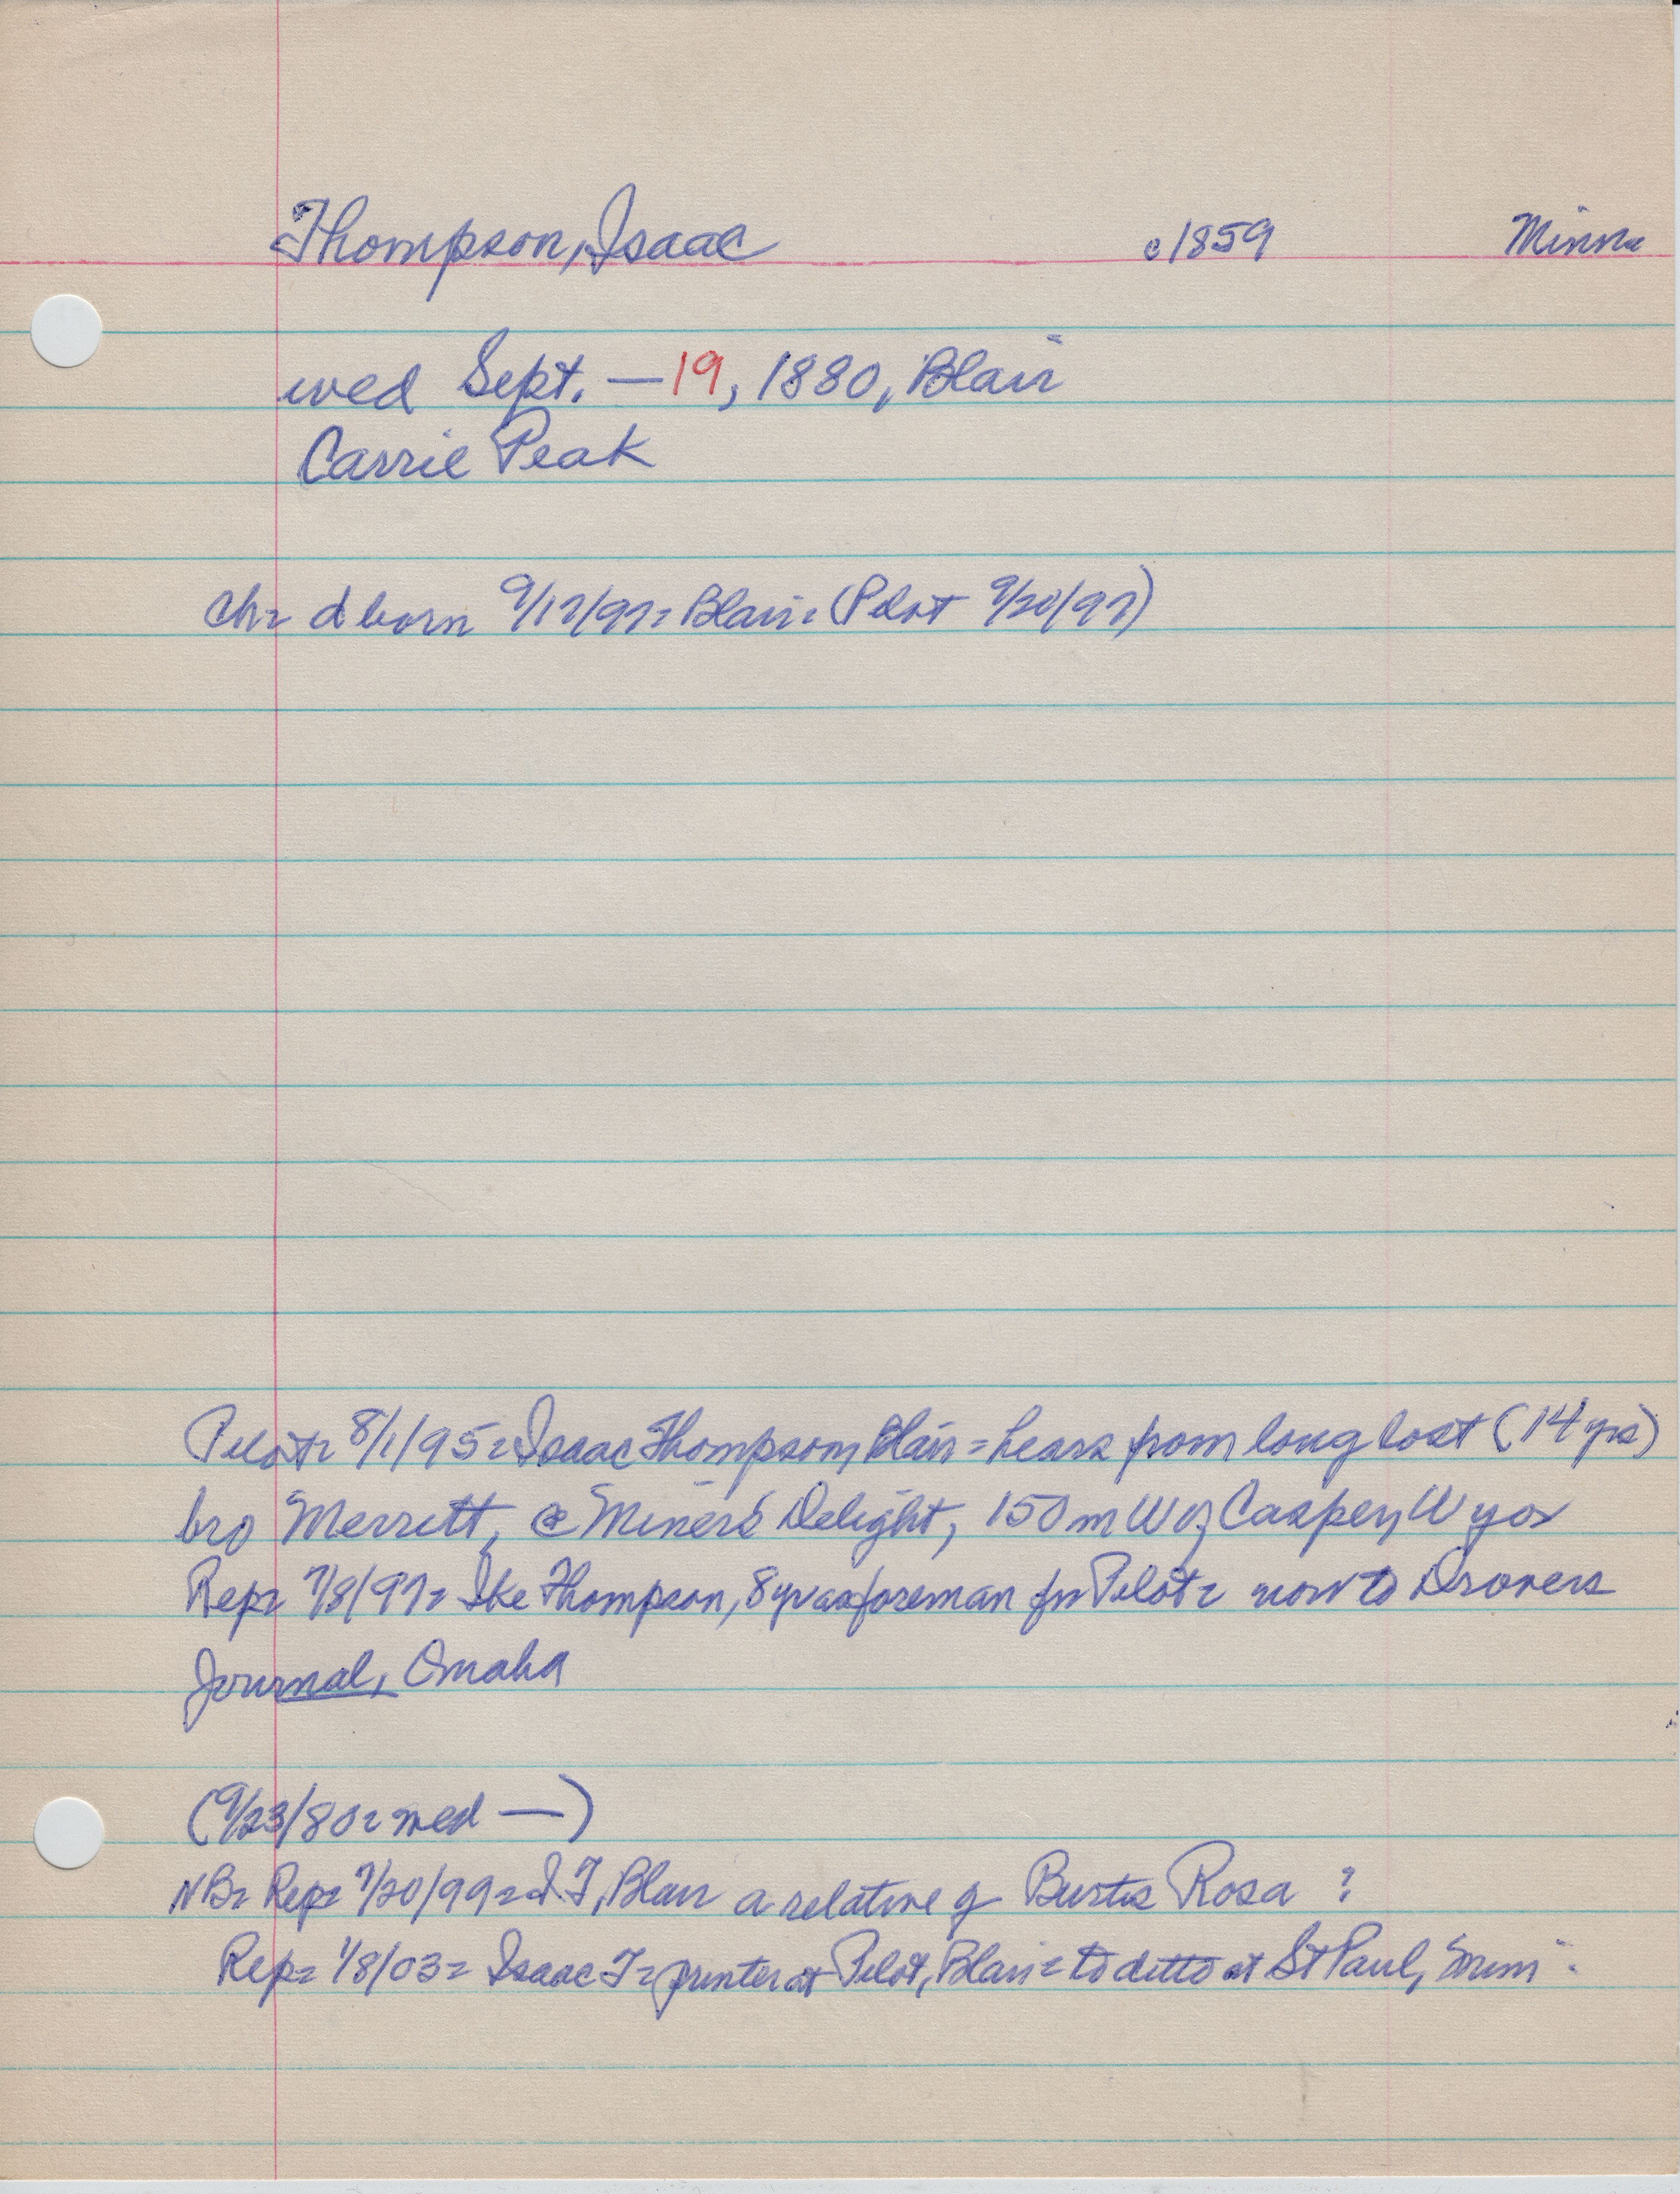 Thompson, Isaac c1859 Minn
wed Sept. — 19, 1880, Blair
Carrie Peak
ch= d born 9/17/97= Blair= (Pilot 9/20/97)
Pilot= 8/1/95= Isaac Thompson, Blair= hears from long lost (14 yrs)
bro Merrett, @ Miner's Delight, 150 m W of Casper, Wyo=
Rep= 7/8/97= Ike Thompson, 8 yr as foreman for Pilot= now to Drovers
Journal, Omaha
(9/23/80= wed —)
NB= Rep= 7/20/99= I.T, Blair a relative of Burtis Rosa ?
Rep= 1/8/03= Isaac T= printer at Pilot, Blair= to ditto at St Paul, Minn.